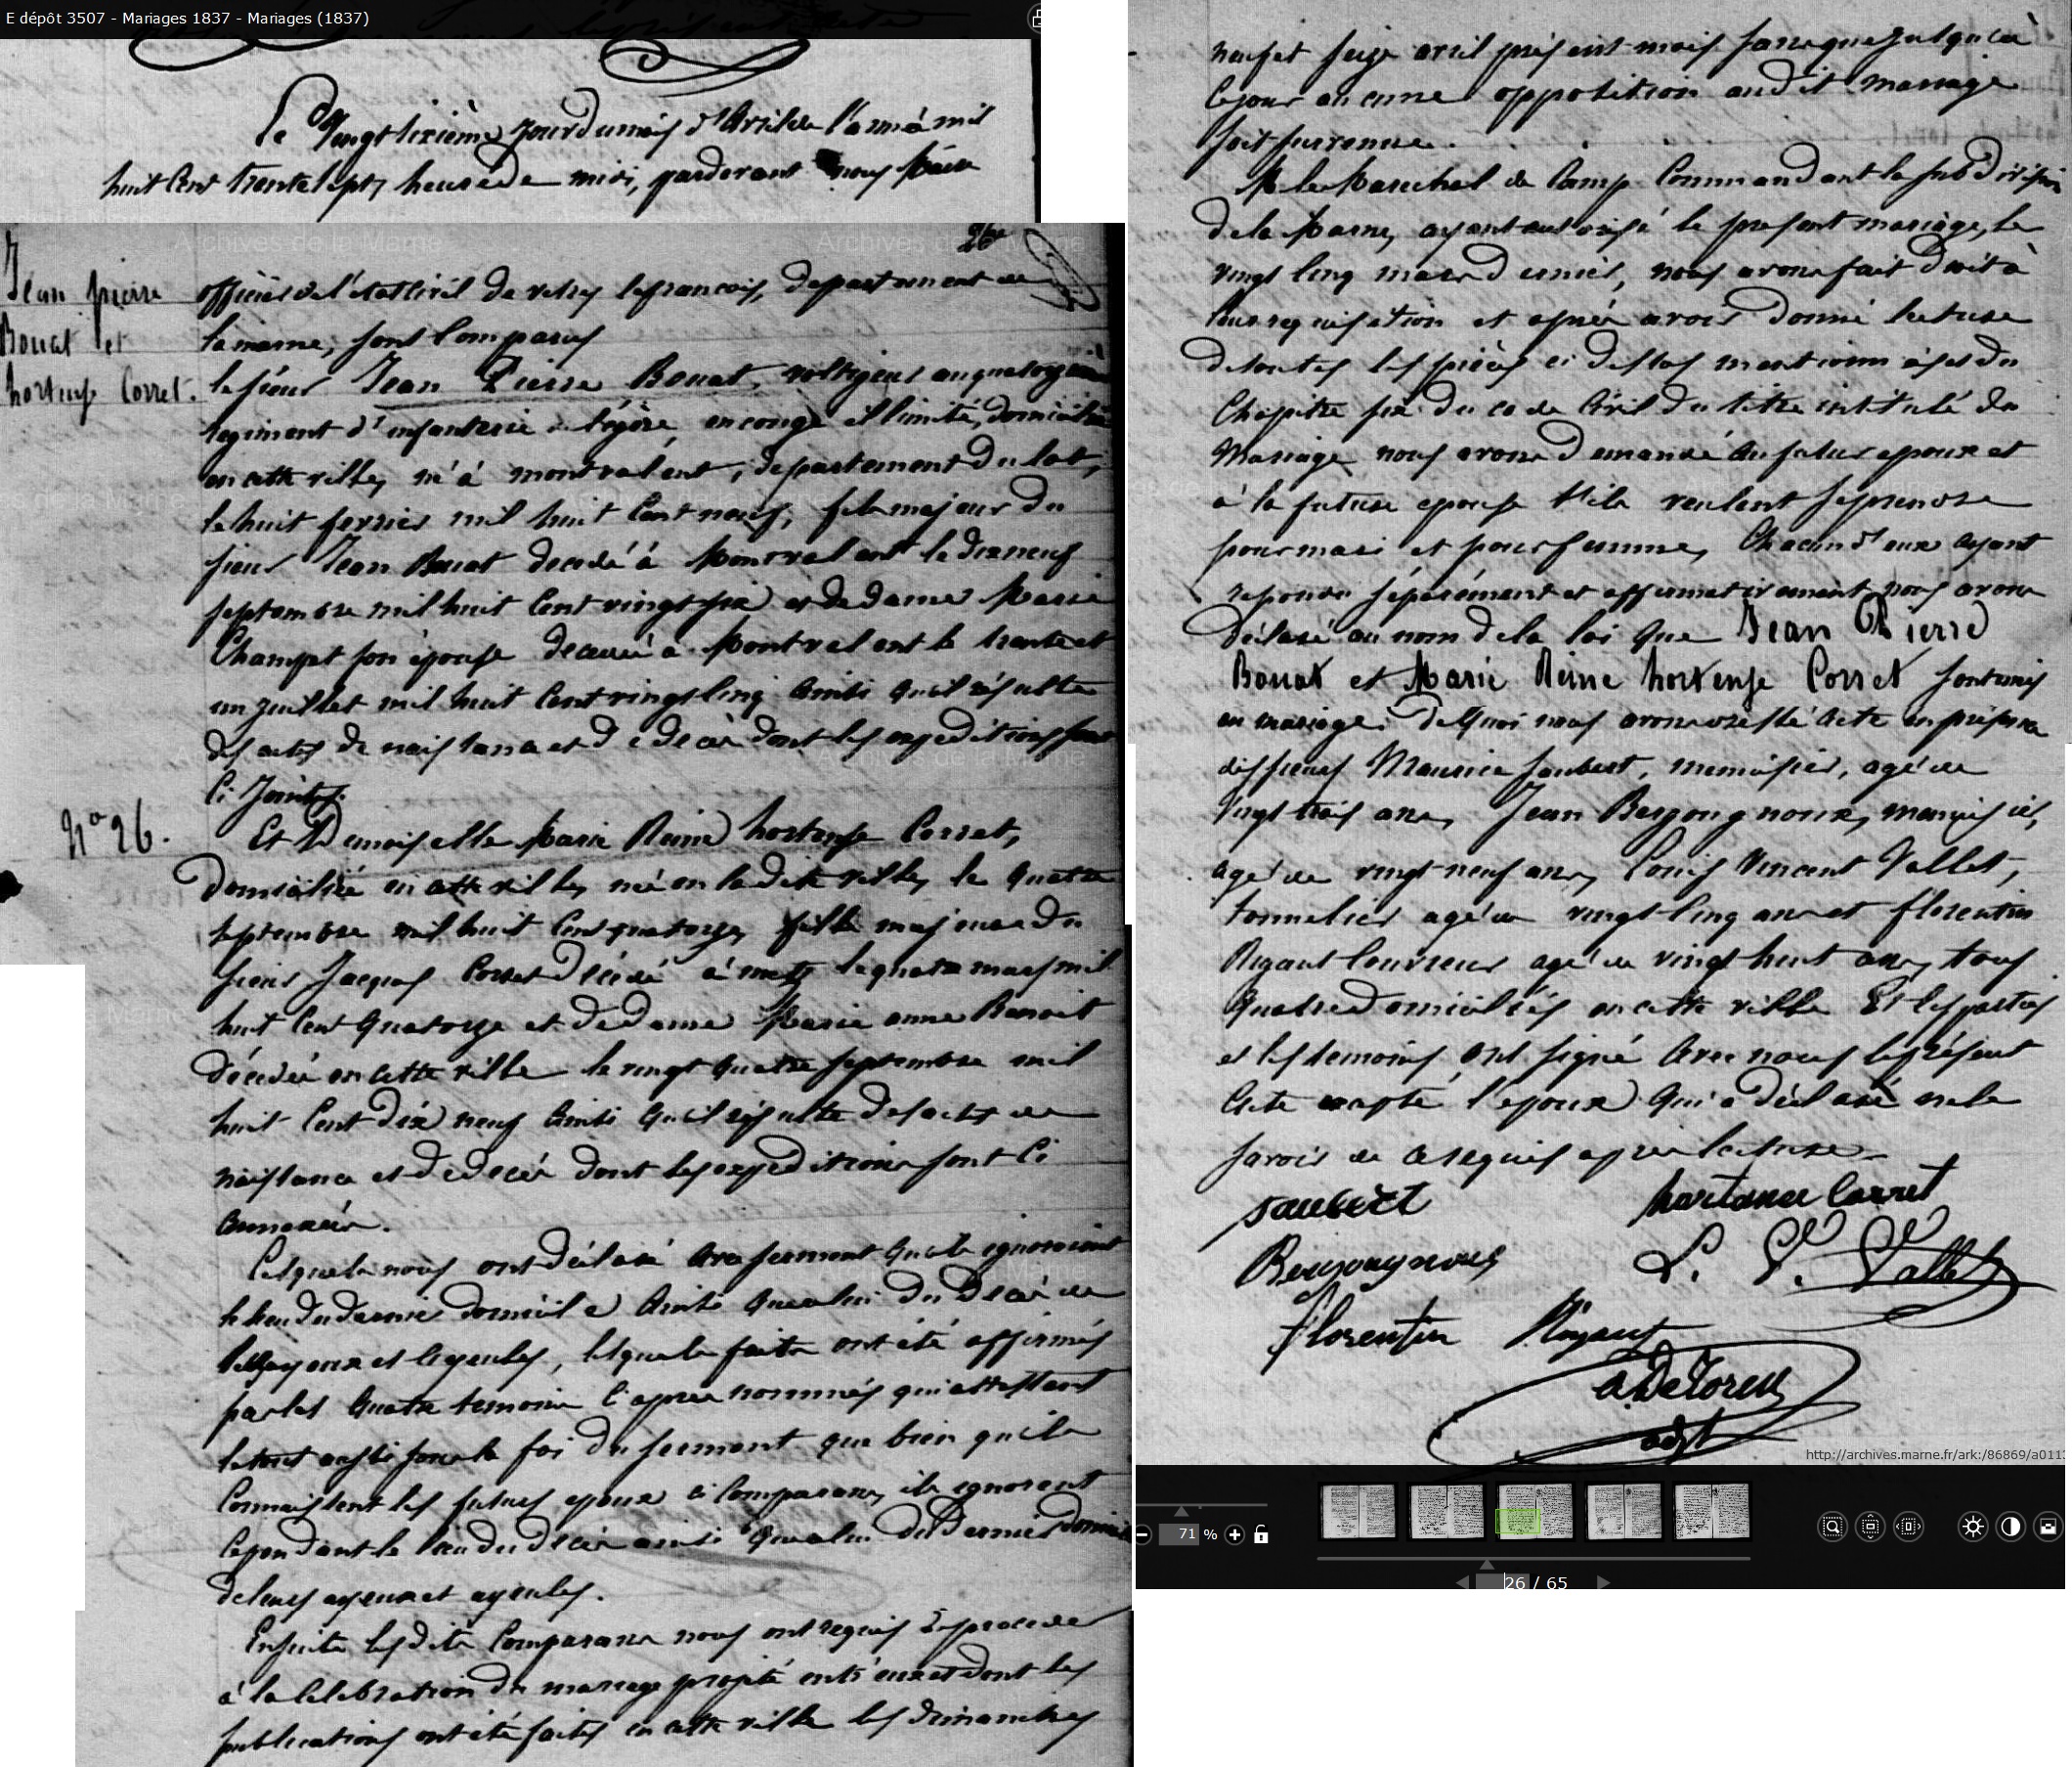 E dépôt 3507 - Mariages 1837 - Mariages (1837)
Le Vingt sixième jour du mois d'Avril de l'année mil
huit Cent trente sept, heure de midi, pardevant nous Maire
26e
Jean pierre
Bouat et
hortense Corret.
N° 26.
officier de l'état Civil de vitry lefrancois, departement de
la marne, sont Comparus
le sieur Jean Pierre Bouat, voltigeur au quatorzième
regiment d'infanterie légère, en congé illimité, domicilié
en cette ville, né à montvalent, departement du lot,
le huit fevrier mil huit Cent neuf, fils majeur du
sieur Jean Bouat decedé à Montvalent le dix neuf
septembre mil huit Cent vingt six et de dame Marie
Champt son épouse decedée à Montvalent le trente et
un juillet mil huit Cent vingt cinq ainsi qu'il résulte
des actes de naissance et de décès dont les expeditions sont
Ci Jointes.
Et Demoiselle Marie Reine hortense Corret,
Domiciliée en cette ville, née en la dite ville, le quatre
septembre mil huit Cent quatorze, fille majeure du
sieur Jacques Corret décédé à metz le quatre mars mil
huit Cent quatorze et de dame Marie anne Benoit
décédée en cette ville le vingt quatre septembre mil
huit Cent dix neuf ainsi qu'il résulte des actes de
naissance et de decès dont les expeditions sont Ci
annexées.
Lesquels nous ont déclaré avec serment qu'ils ignoraient
le lieu du dernier domicile ainsi que celui du Décès de
leurs ayeux et ayeules, lesquels faits ont été affirmés
par les quatre temoins Ci après nommés qui attestent
le tout aussi sous la foi du serment que bien qu'ils
Connaissent les futurs epoux Ci Comparans, ils ignorent
Cependant le lieu du décès ainsi que celui du Dernier domicile
de leurs ayeux et ayeules.
Ensuite lesdits Comparans nous ont requis de proceder
à la Celebration du mariage projeté entr'eux et dont les
publications ont été faites en cette ville les dimanches
neuf et seize avril présent mois sans que jusqu'à
Ce jour aucune opposition audit mariage
soit survenue.
M. le Marechal de Camp Commandant la subdivision
de la Marne, ayant autorisé le present mariage, le
vingt cinq mars dernier, nous avons fait droit à
leur requisition et après avoir donné lecture
de toutes les pièces ci dessus mentionnées et du
Chapitre six du code Civil du titre intitulé du
Mariage nous avons demandé au futur epoux et
à la future epouse s'ils veulent se prendre
pour mari et pour femme, Chacun d'eux ayant
repondu séparément et affirmativement nous avons
déclaré au nom de la loi que Jean Pierre
Bouat et Marie Reine hortense Corret sont unis
en mariage. De quoi nous avons dressé Acte en présence
des sieurs Maurice Jaubert, menuisier, agé de
Vingt trois ans, Jean Bergougnoux, menuisier,
agé de vingt neuf ans, Louis Vincent Vallet,
tonnelier agé de vingt cinq ans et florentin
Rigaut Couvreur agé de vingt huit ans, tous
quatre domiciliés en cette ville Et les parties
et les temoins ont signé Avec nous le présent
Acte excepté l'epoux qui a déclaré ne le
savoir de ce requis après lecture.
hortense Corret
L. V. Vallet
florentin Rigaut
http://archives.marne.fr/ark:/86869/a011
71 %
26 / 65
Archives de la Marne